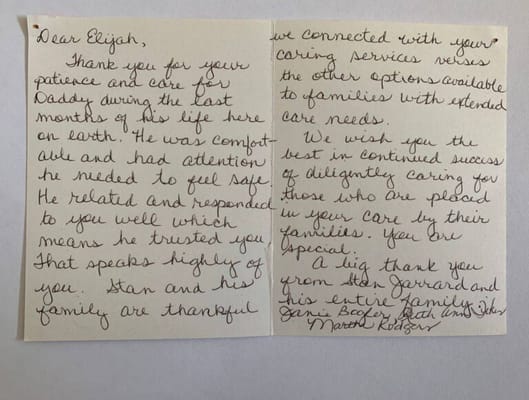 Dear Elijah,
Thank you for your
patience and care for
Daddy during the last
months of his life here
on earth. He was comfort-
able and had attention
he needed to feel safe.
He related and responded
to you well which
means he trusted you.
That speaks highly of
you. Stan and his
family are thankful
we connected with your
caring services verses
the other options available
to families with extended
care needs.
We wish you the
best in continued success
of diligently caring for
those who are placed
in your care by their
families. You are
special.
A big thank you
from Stan Jarrard and
his entire family:
Janie Ruth Ann
Martha Rodgers